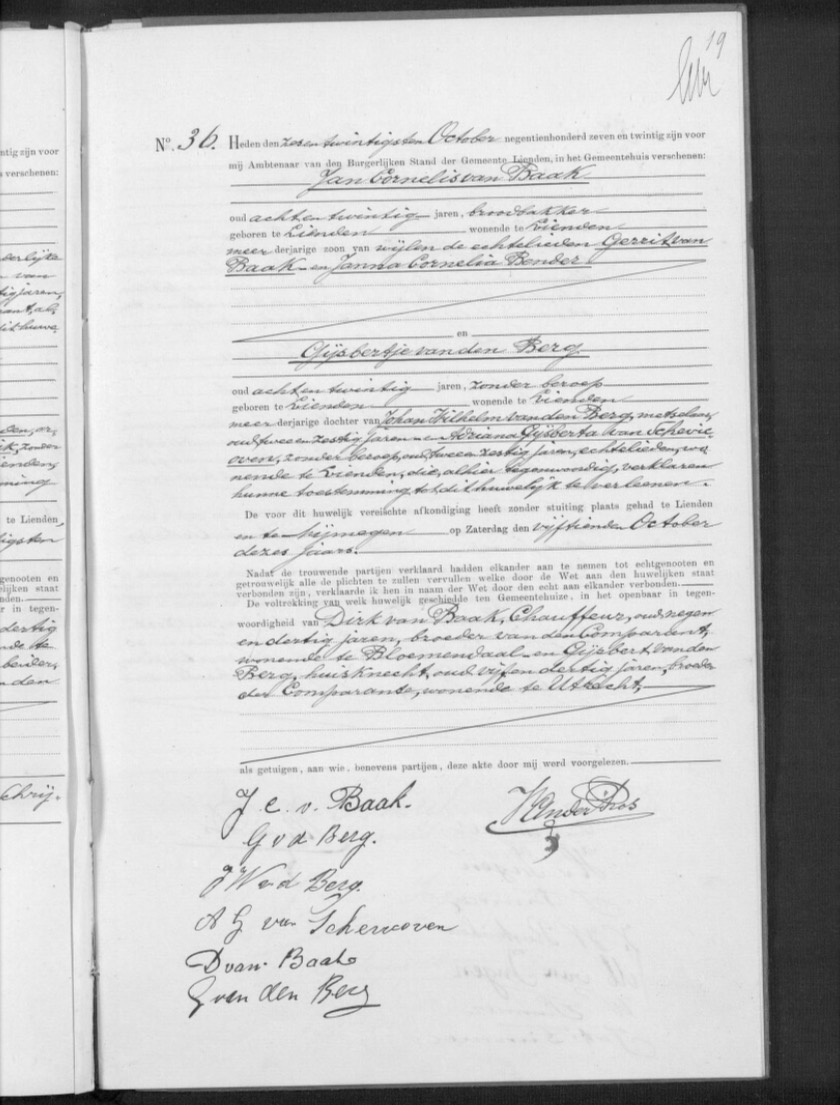 19
No. 36. Heden den zes en twintigsten October negentienhonderd zeven en twintig zijn voor
mij Ambtenaar van den Burgerlijken Stand der Gemeente Lienden, in het Gemeentehuis verschenen:
Jan Cornelis van Baak
oud acht en twintig jaren, broodbakker
geboren te Lienden wonende te Lienden
meer derjarige zoon van wijlen de echtelieden Gerrit van
Baak en Janna Cornelia Bender.
en
Gijsbertje van den Berg
oud acht en twintig jaren, zonder beroep
geboren te Lienden wonende te Lienden
meer derjarige dochter van Johan Wilhelm van den Berg, metselaar,
oud twee en zestig jaren en Adriana Gijsberta van Schevic-
oven, zonder beroep, oud twee en zestig jaren, echtelieden, wo-
nende te Lienden, die, alhier tegenwoordig, verklaren
hunne toestemming tot dit huwelijk te verleenen.
De voor dit huwelijk vereischte afkondiging heeft zonder stuiting plaats gehad te Lienden
en te Nijmegen op Zaterdag den vijftienden October
dezes jaars.
Nadat de trouwende partijen verklaard hadden elkander aan te nemen tot echtgenooten en
getrouwelijk alle de plichten te zullen vervullen welke door de Wet aan den huwelijken staat
verbonden zijn, verklaarde ik hen in naam der Wet door den echt aan elkander verbonden.
De voltrekking van welk huwelijk geschiedde ten Gemeentehuize, in het openbaar in tegen-
woordigheid van Dirk van Baak, Chauffeur, oud negen
en dertig jaren, broeder van den Comparant,
wonende te Bloemendaal en Gijsbert van den
Berg, huisknecht, oud vijf en dertig jaren, broeder
der Comparante, wonende te Utrecht,
als getuigen, aan wie, benevens partijen, deze akte door mij werd voorgelezen.
J C. v. Baak.
G v d Berg.
J W v d Berg.
A G van Schevicoven
D van Baak
G van den Berg